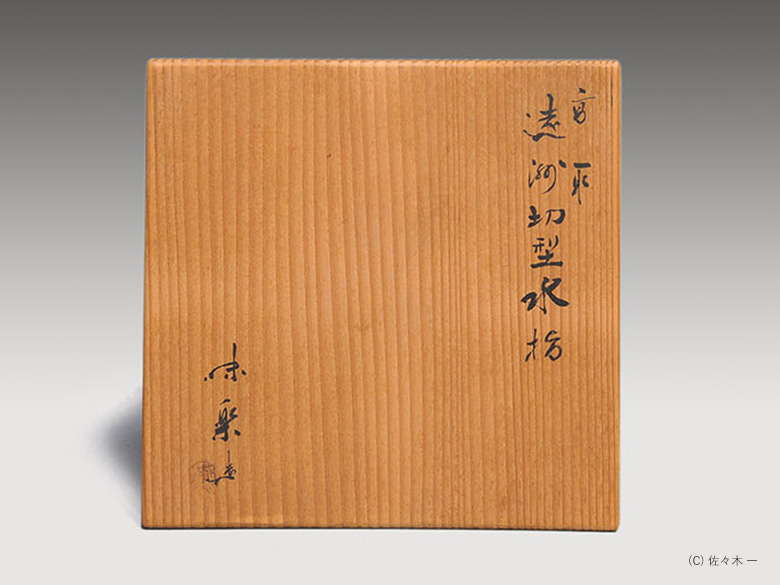 高取
遠州切型水指
味楽造
(C) 佐々木 一